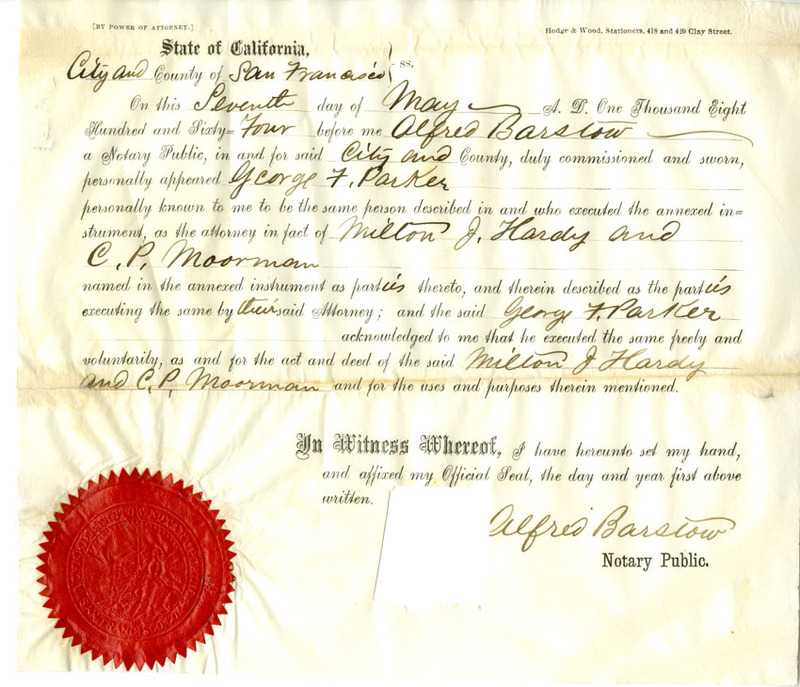 [BY POWER OF ATTORNEY.]
Hodge & Wood, Stationers, 418 and 420 Clay Street.
State of California,
City and County of San Francisco } ss.
On this Seventh day of May A. D. One Thousand Eight
Hundred and Sixty=Four before me Alfred Barstow
a Notary Public, in and for said City and County, duly commissioned and sworn,
personally appeared George F. Parker
personally known to me to be the same person described in and who executed the annexed in=
strument, as the attorney in fact of Milton J. Hardy and
C. P. Moorman
named in the annexed instrument as parties thereto, and therein described as the parties
executing the same by their said Attorney; and the said George F. Parker
acknowledged to me that he executed the same freely and
voluntarily, as and for the act and deed of the said Milton J Hardy
and C. P. Moorman and for the uses and purposes therein mentioned.
In Witness Whereof, I have hereunto set my hand,
and affixed my Official Seal, the day and year first above
written.
Alfred Barstow
Notary Public.